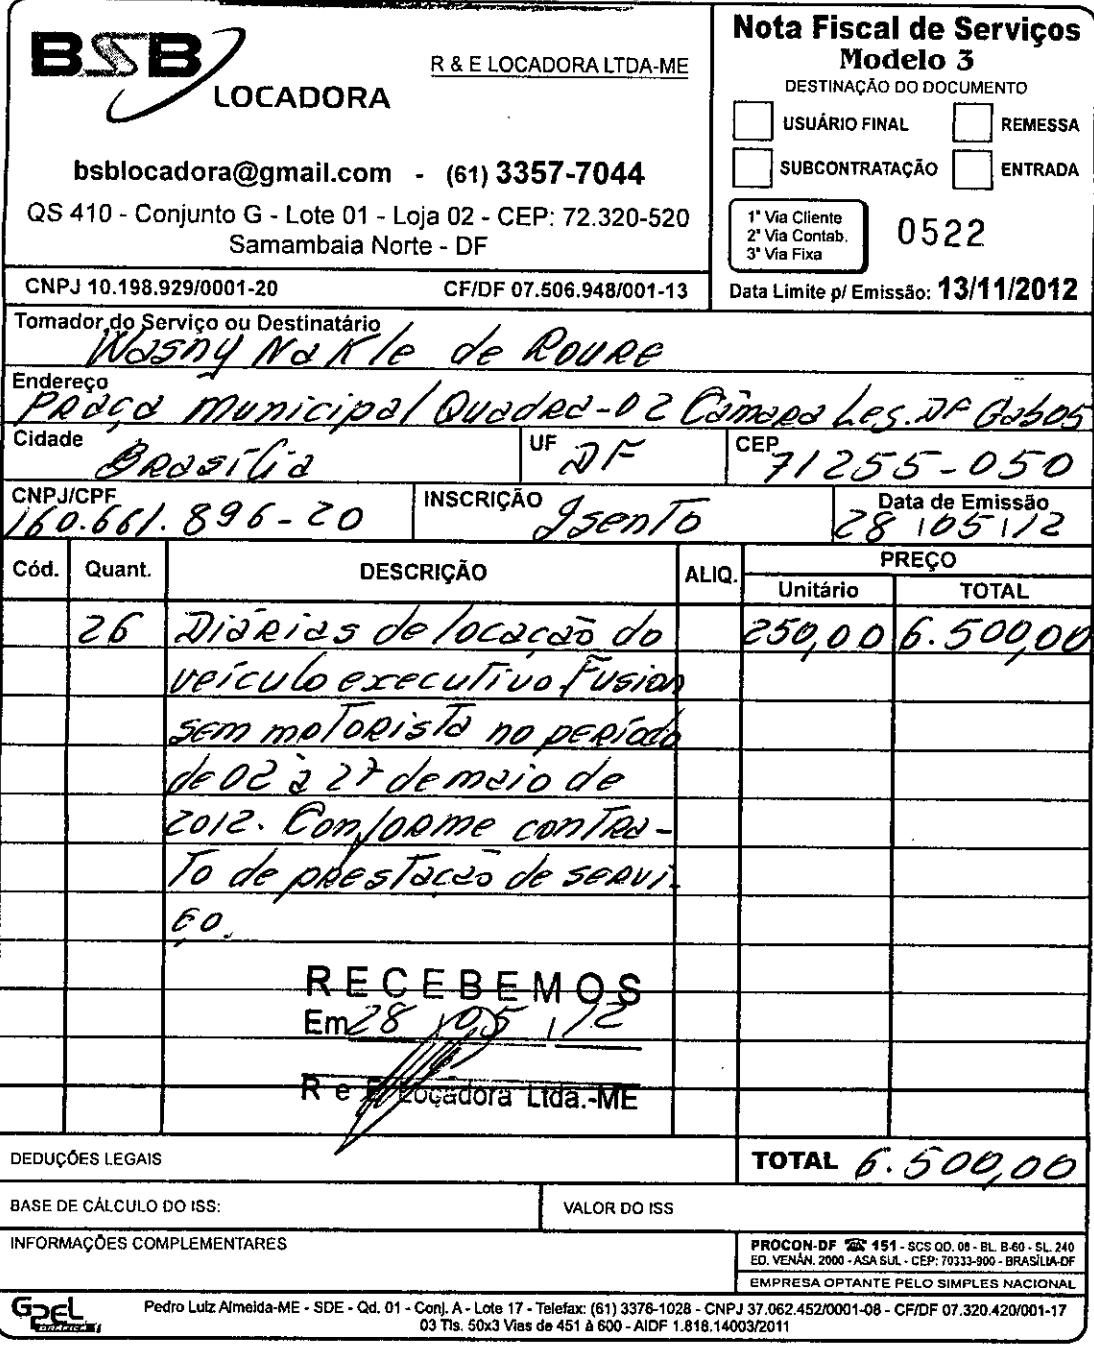 BSB
LOCADORA
R & E LOCADORA LTDA-ME
bsblocadora@gmail.com - (61) 3357-7044
QS 410 - Conjunto G - Lote 01 - Loja 02 - CEP: 72.320-520
Samambaia Norte - DF
CNPJ 10.198.929/0001-20 CF/DF 07.506.948/001-13
Nota Fiscal de Serviços
Modelo 3
DESTINAÇÃO DO DOCUMENTO
USUÁRIO FINAL REMESSA
SUBCONTRATAÇÃO ENTRADA
1ª Via Cliente
2ª Via Contab.
3ª Via Fixa
0522
Data Limite p/ Emissão: 13/11/2012
Tomador do Serviço ou Destinatário
Wasny Nakle de Roure
Endereço
Praça Municipal Quadra-02 Câmara Leg. DF Gab05
Cidade Brasília UF DF CEP 71255-050
CNPJ/CPF 160.661.896-20 INSCRIÇÃO Isento Data de Emissão 28/05/12
Cód. Quant. DESCRIÇÃO ALIQ. PREÇO
Unitário TOTAL
26 Diárias de locação do 250,00 6.500,00
veículo executivo Fusion
sem motorista no período
de 02 à 27 de maio de
2012. Conforme contra-
to de prestação de servi-
ço.
RECEBEMOS
Em 28/05/12
R e E Locadora Ltda.-ME
DEDUÇÕES LEGAIS TOTAL 6.500,00
BASE DE CÁLCULO DO ISS: VALOR DO ISS
INFORMAÇÕES COMPLEMENTARES
PROCON-DF ☎ 151 - SCS QD. 08 - BL. B-60 - SL. 240
ED. VENÂN. 2000 - ASA SUL - CEP: 70333-900 - BRASÍLIA-DF
EMPRESA OPTANTE PELO SIMPLES NACIONAL
Pedro Luiz Almeida-ME - SDE - Qd. 01 - Conj. A - Lote 17 - Telefax: (61) 3376-1028 - CNPJ 37.062.452/0001-08 - CF/DF 07.320.420/001-17
03 Tls. 50x3 Vias de 451 à 600 - AIDF 1.818.14003/2011